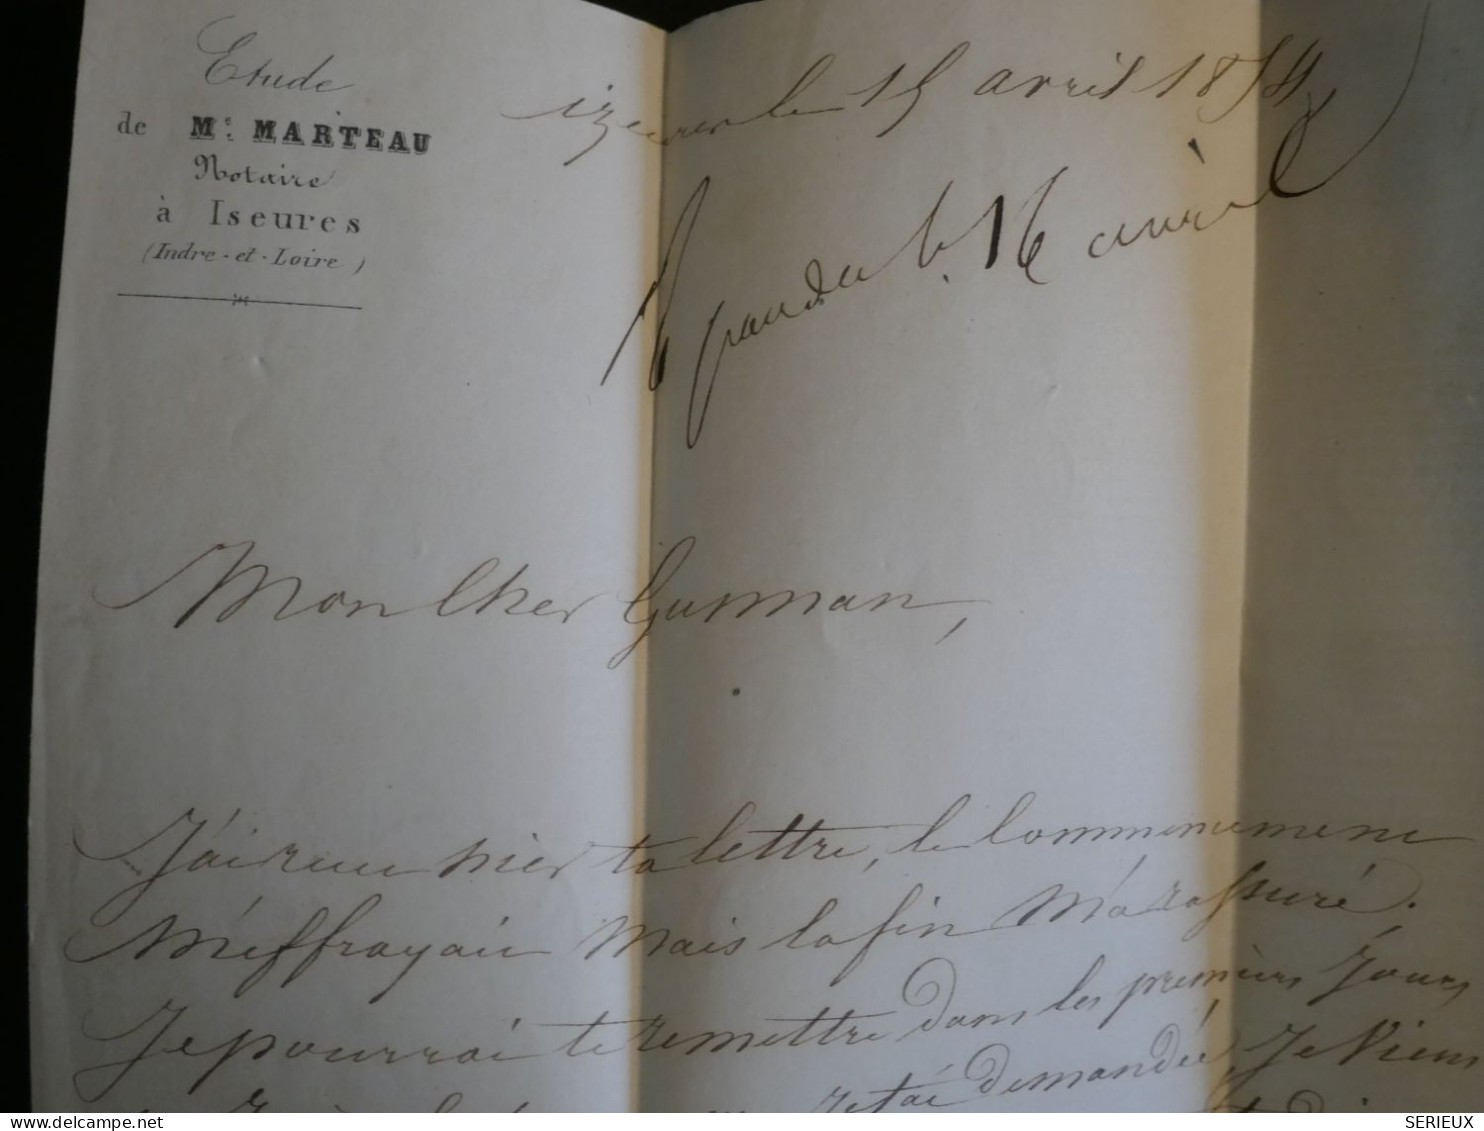 Etude
de Me MARTEAU
Notaire
à Iseures
(Indre-et-Loire)
izeures le 15 avril 1874
Repondu le 16 avril
Mon Cher Gusman,
J'ai recu hier ta lettre, le Commencement
M'effrayait Mais la fin M'a rassuré.
Je pourrai te remettre dans les premiers Jours
demandée, Je Viens
SERIEUX